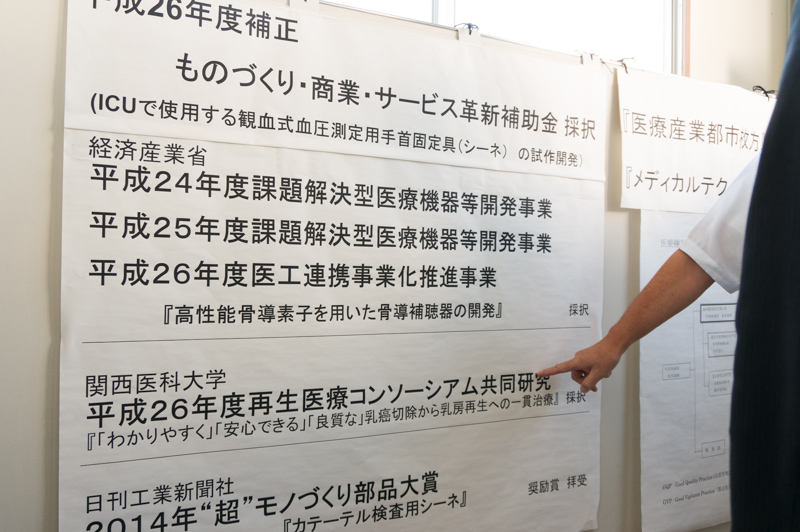 平成26年度補正
ものづくり・商業・サービス革新補助金 採択
(ICUで使用する観血式血圧測定用手首固定具(シーネ) の試作開発)
経済産業省
平成24年度課題解決型医療機器等開発事業
平成25年度課題解決型医療機器等開発事業
平成26年度医工連携事業化推進事業
『高性能骨導素子を用いた骨導補聴器の開発』 採択
関西医科大学
平成26年度再生医療コンソーシアム共同研究
『「わかりやすく」「安心できる」「良質な」乳癌切除から乳房再生への一貫治療』 採択
日刊工業新聞社
2014年“超”モノづくり部品大賞 奨励賞 拝受
『カテーテル検査用シーネ』
『医療産業都市枚方
『メディカルテク